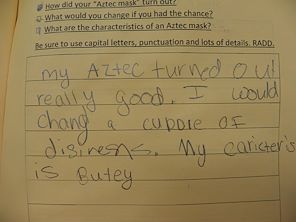 How did your "Aztec mask" turn out?
What would you change if you had the chance?
What are the characteristics of an Aztec mask?
Be sure to use capital letters, punctuation and lots of details. RADD.
my Aztec turned out
really good. I would
chang a cuppie of
disiness. My caricter's
is Butey